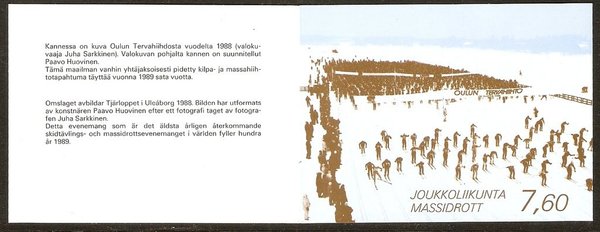 Kannessa on kuva Oulun Tervahiihdosta vuodelta 1988 (valoku-
vaaja Juha Sarkkinen). Valokuvan pohjalta kannen on suunnitellut
Paavo Huovinen.
Tämä maailman vanhin yhtäjaksoisesti pidetty kilpa- ja massahiih-
totapahtuma täyttää vuonna 1989 sata vuotta.
Omslaget avbildar Tjärloppet i Uleåborg 1988. Bilden har utformats
av konstnären Paavo Huovinen efter ett fotografi taget av fotogra-
fen Juha Sarkkinen.
Detta evenemang som är det äldsta årligen återkommande
skidtävlings- och massidrottsevenemanget i världen fyller hundra
år 1989.
OULUN TERVAHIIHTO
JOUKKOLIIKUNTA
MASSIDROTT 7,60